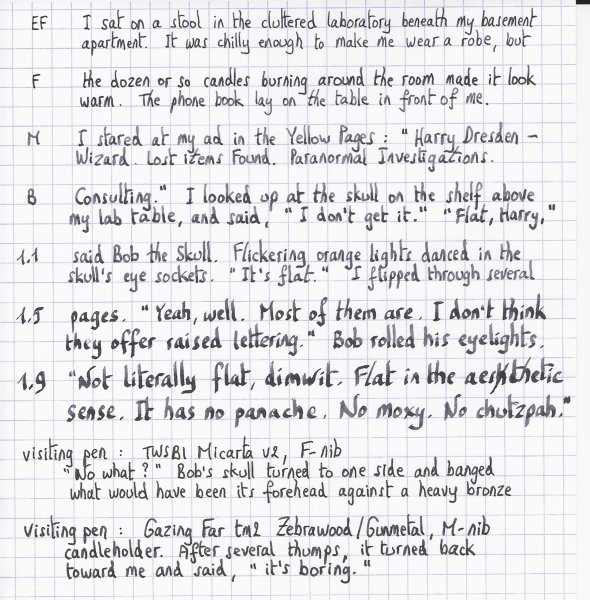 EF I sat on a stool in the cluttered laboratory beneath my basement
apartment. It was chilly enough to make me wear a robe, but
F the dozen or so candles burning around the room made it look
warm. The phone book lay on the table in front of me.
M I stared at my ad in the Yellow Pages : "Harry Dresden –
Wizard. Lost items Found. Paranormal Investigations.
B Consulting." I looked up at the skull on the shelf above
my lab table, and said, "I don't get it." "Flat, Harry,"
1.1 said Bob the Skull. Flickering orange lights danced in the
skull's eye sockets. "It's flat." I flipped through several
1.5 pages. "Yeah, well. Most of them are. I don't think
they offer raised lettering." Bob rolled his eyelights.
1.9 "Not literally flat, dimwit. Flat in the aesthetic
sense. It has no panache. No moxy. No chutzpah."
visiting pen : TWSBI Micarta v2, F-nib
"No what?" Bob's skull turned to one side and banged
what would have been its forehead against a heavy bronze
visiting pen : Gazing Far tm2 Zebrawood/Gunmetal, M-nib
candleholder. After several thumps, it turned back
toward me and said, "it's boring."